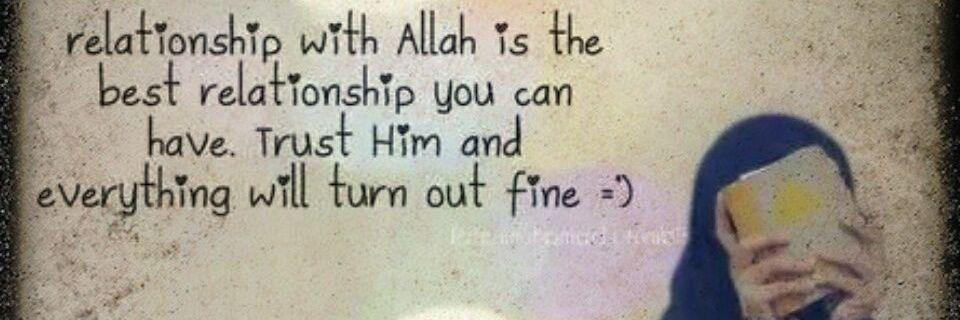 relationship with Allah is the
best relationship you can
have. Trust Him and
everything will turn out fine =')